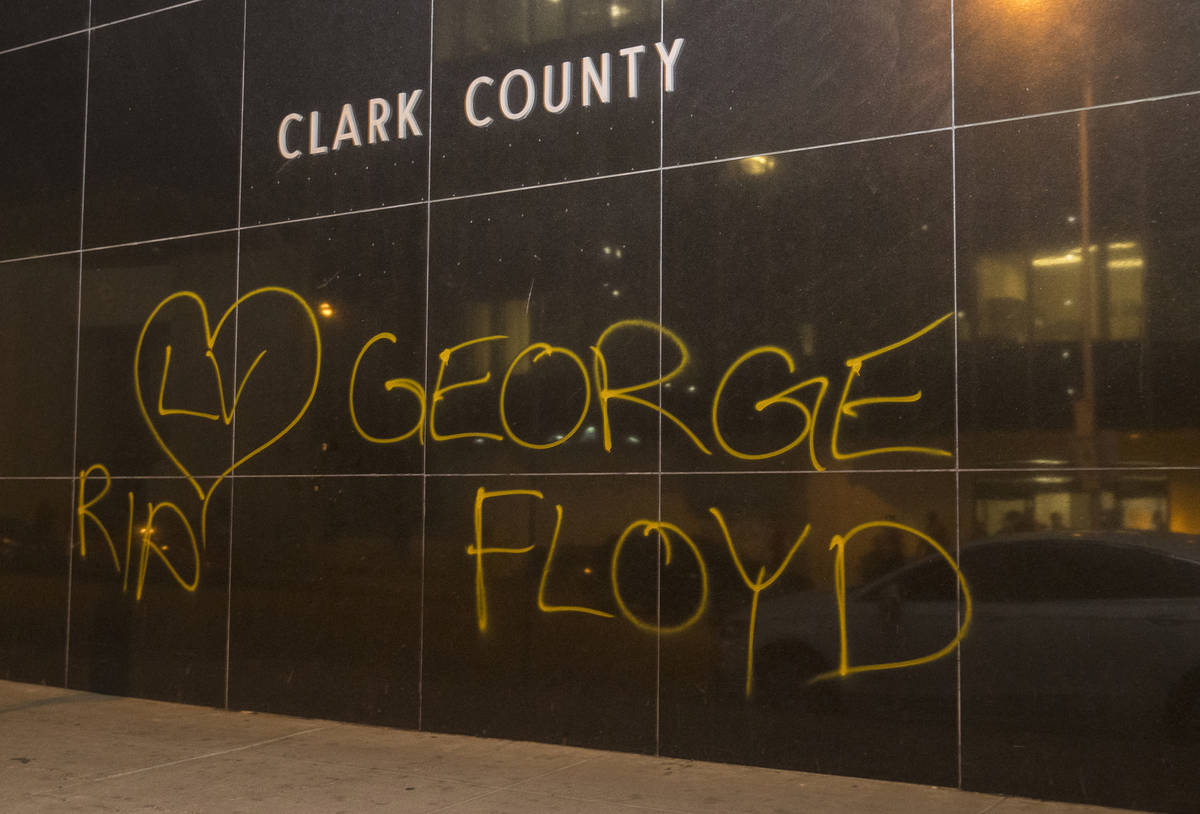 CLARK COUNTY
LV
GEORGE
RIP
FLOYD